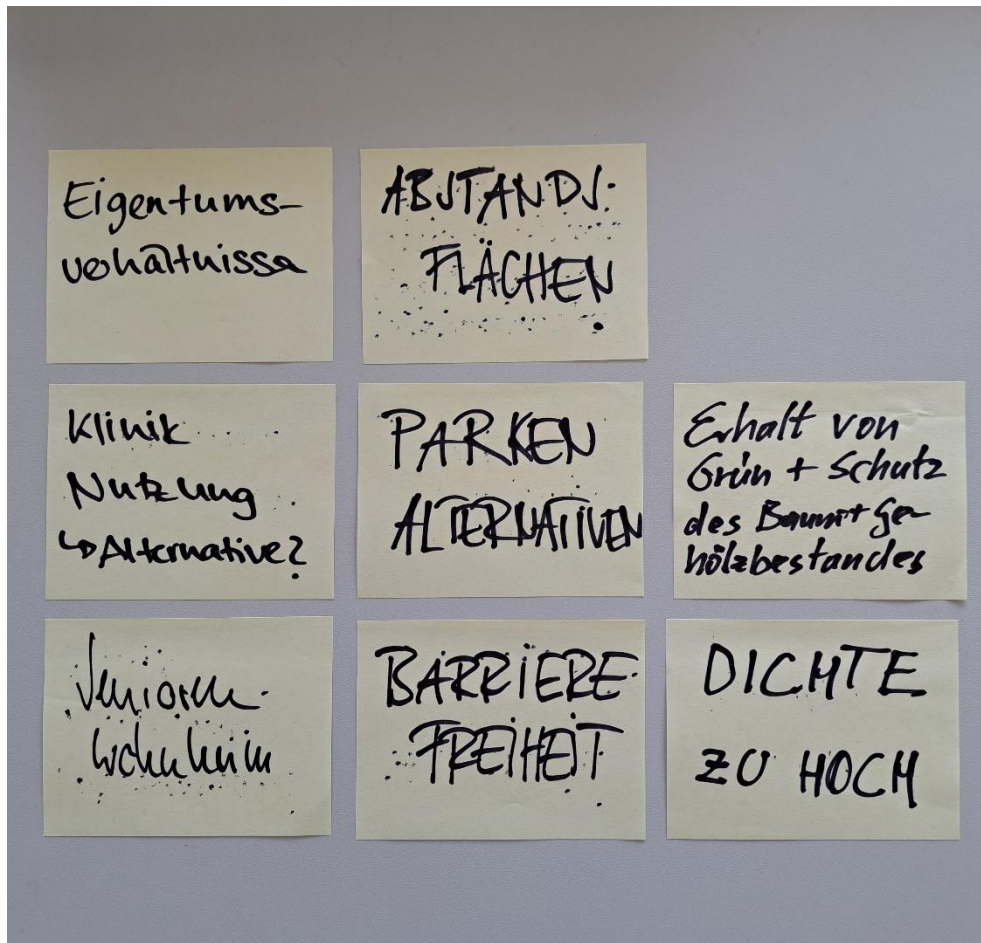 Eigentums-
verhältnisse
ABSTANDS-
FLÄCHEN
Klinik
Nutzung
↳ Alternative?
PARKEN
ALTERNATIVEN
Erhalt von
Grün + Schutz
des Baum+ Ge-
hölzbestandes
Senioren-
wohnheim
BARRIERE-
FREIHEIT
DICHTE
ZU HOCH